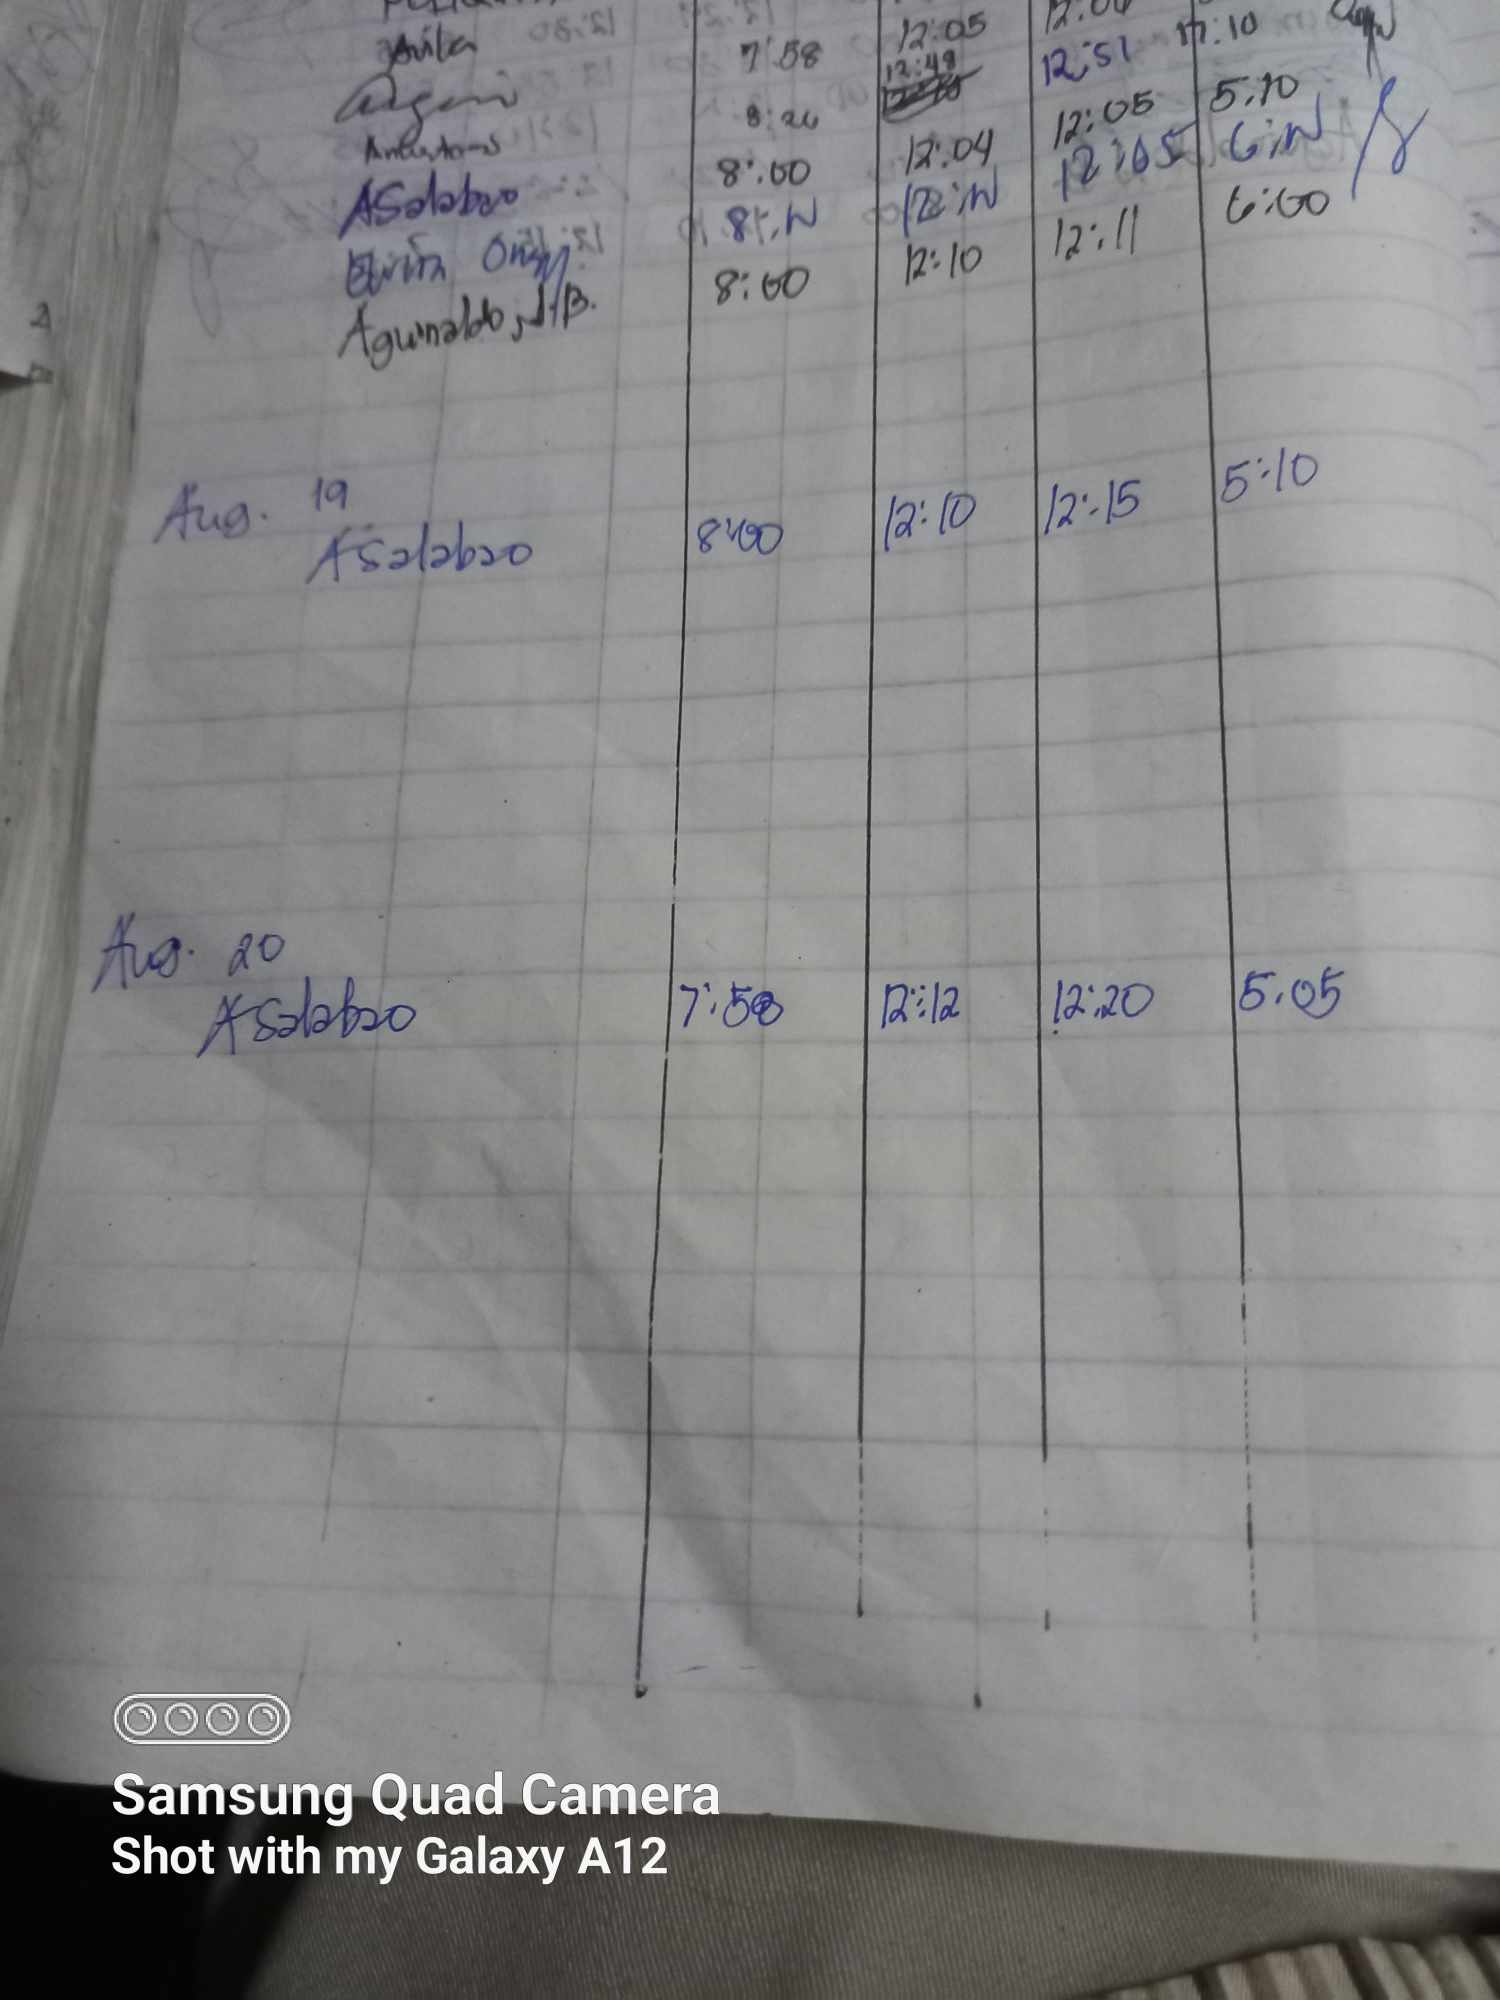 Avila 7:58 12:05
12:49 12:51 17:10
8:26 12:05 5:10
ASalabao 8:00 12:04 12:05
8:W 12:W 6:W
Aguinaldo, J.B. 8:00 12:10 12:11 6:00
Aug. 19
ASalabao 8:00 12:10 12:15 5:10
Aug. 20
ASalabao 7:58 12:12 12:20 5:05
Samsung Quad Camera
Shot with my Galaxy A12